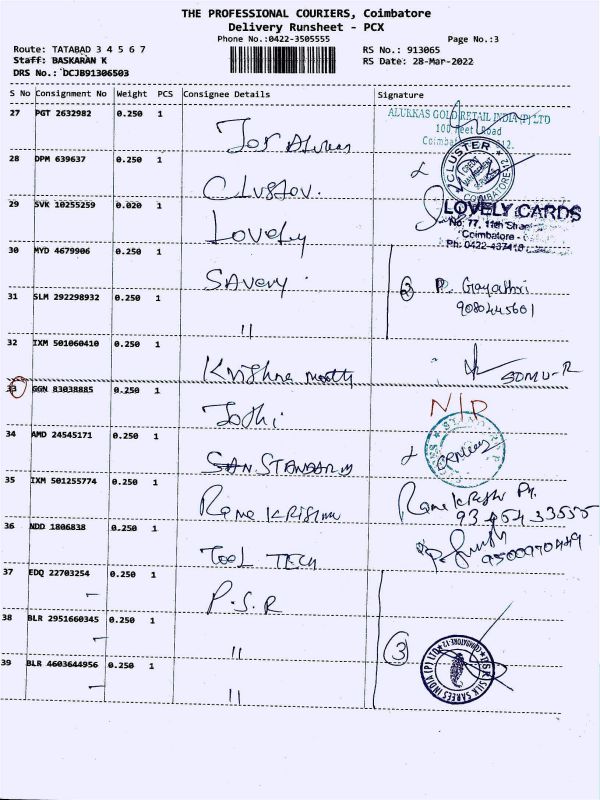 THE PROFESSIONAL COURIERS, Coimbatore
Delivery Runsheet - PCX
Phone No.:0422-3505555
Page No.:3
Route: TATABAD 3 4 5 6 7
RS No.: 913065
Staff: BASKARAN K
RS Date: 28-Mar-2022
DRS No.: DCJB91306503
S No Consignment No Weight PCS Consignee Details Signature
27 PGT 2632982 0.250 1 Jos Alukas
ALUKKAS GOLD RETAIL INDIA (P) LTD
100 Feet Road
28 DPM 639637 0.250 1
CLUSTER
COIMBATORE-12
29 SVK 10255259 0.020 1 Lovely
LOVELY CARDS
No: 77, 11th Street
Coimbatore -
Ph: 0422-437418
30 MYD 4679906 0.250 1 Savery
2 P. Gayathri
9080445601
31 SLM 292298932 0.250 1 11
32 IXM 501060410 0.250 1 Krishna
SOMU-R
33 GGN 83038885 0.250 1 Joshi
N/D
34 AMD 24545171 0.250 1 SAN
35 IXM 501255774 0.250 1 Rama Krishna
36 NDD 1806838 0.250 1 Tool Tech
37 EDQ 22703254 0.250 1 P.S.R
38 BLR 2951660345 0.250 1 11
3
P.S.R SILK SAREES INDIA (P) LTD
COIMBATORE-12
39 BLR 4603644956 0.250 1 11